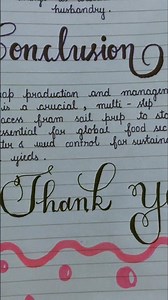 husbandry.
Conclusion
op production and managem
is a crucial, multi-step
ocess from soil prep to sto
ssential for global food sec
ter & weed control for sustain
yields.
Thank Y